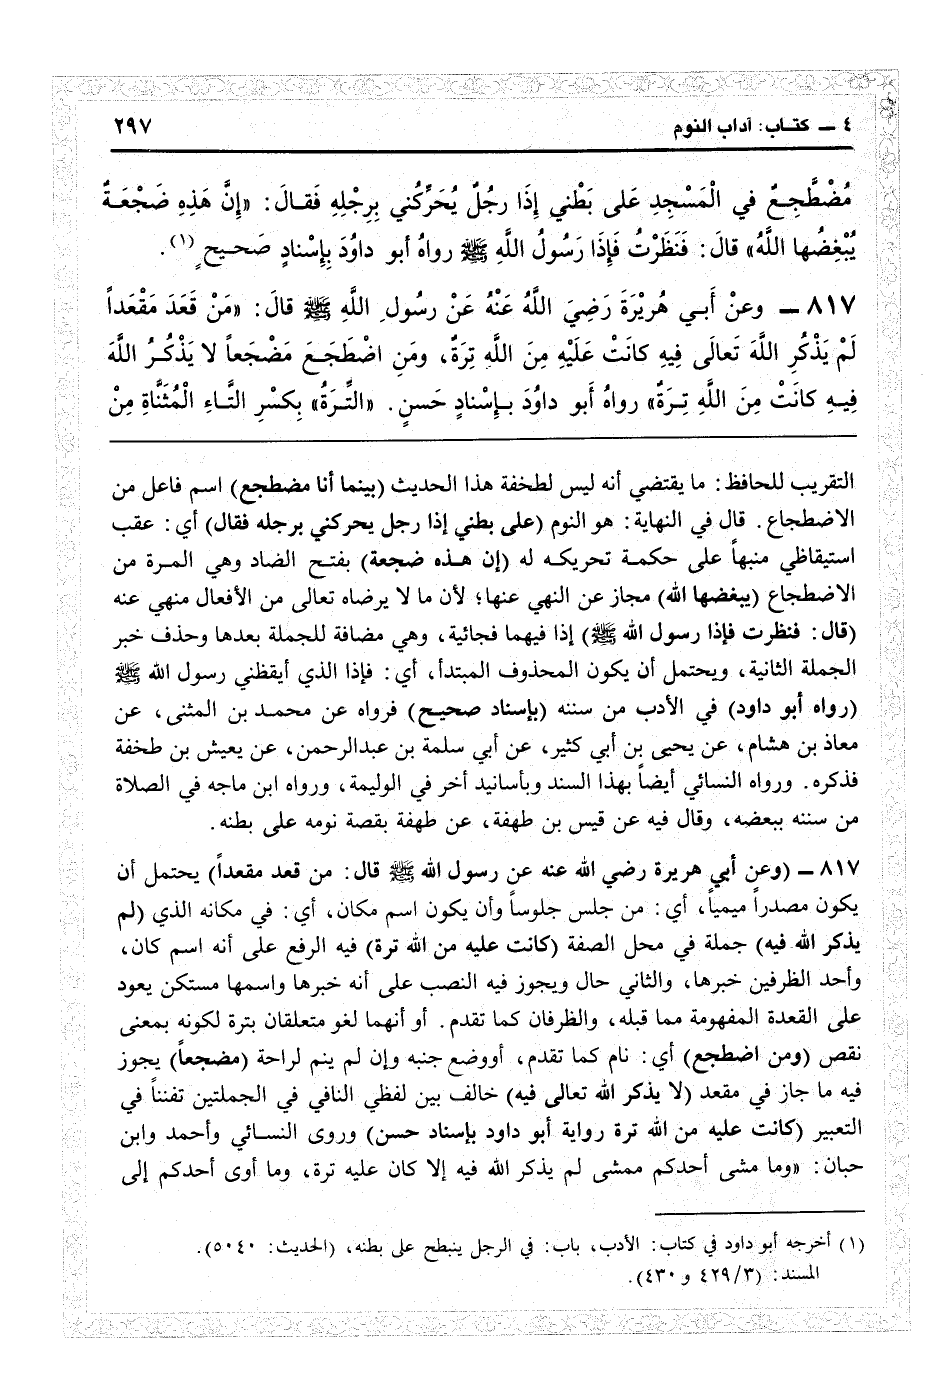 ٤ ـ كتـاب: آداب النوم
٢٩٧
مُضْطَّجِعٌ في الْمَسْجِدِ عَلى بَطْني إِذَا رجُلٌ يُحَرِّكُني بِرِجْلِهِ فَقـالَ: «إِنَّ هَذِهِ ضَجْعَـةٌ
يُبْغِضُها اللَّهُ» قالَ: فَنَظَرْتُ فَإِذَا رَسُولُ اللَّهِ ﷺ رواهُ أبو داوُدَ بِإِسْنادٍ صَحـيح ٍ(١).
٨١٧ ـ وعنْ أَبـي هُريْرَةَ رَضِيَ اللَّهُ عَنْهُ عَنْ رسُولِ اللَّهِ ﷺ قالَ: «مَنْ قَعَدَ مَقْعَداً
لَمْ يَذْكُرِ اللَّهَ تَعالَى فِيهِ كانَتْ عَلَيْهِ مِنَ اللَّهِ تِرَةٌ، ومَنِ اضْطَجَـعَ مَضْجَعاً لا يَذْكُـرُ اللَّهَ
فِيـهِ كانَتْ مِنَ اللَّهِ تِـرَةٌ» رواهُ أَبو داوُدَ بـإِسْنادٍ حَسنٍ. «التِّـرَةُ» بِكَسْرِ التَّـاءِ الْمُثَنَّاةِ مِنْ
التقريب للحافظ: ما يقتضي أنه ليس لطخفة هذا الحديث (بينما أنا مضطجع) اسم فاعل من
الاضطجاع. قال في النهاية: هو النوم (على بطني إذا رجل يحركني برجله فقال) أي: عقب
استيقاظي منبهاً على حكمـة تحريكـه له (إن هـذه ضجعة) بفتـح الضاد وهي المـرة من
الاضطجاع (يبغضها الله) مجاز عن النهي عنها؛ لأن ما لا يرضاه تعالى من الأفعال منهي عنه
(قال: فنظرت فإذا رسول الله ﷺ) إذا فيهما فجائية، وهي مضافة للجملة بعدها وحذف خبر
الجملة الثانية، ويحتمل أن يكون المحذوف المبتدأ، أي: فإذا الذي أيقظني رسول الله ﷺ
(رواه أبو داود) في الأدب من سننه (بإسناد صحيـح) فرواه عن محمـد بن المثنى، عن
معاذ بن هشام، عن يحيى بن أبي كثير، عن أبي سلمة بن عبدالرحمن، عن يعيش بن طخفة
فذكره. ورواه النسائي أيضاً بهذا السند وبأسانيد أخر في الوليمة، ورواه ابن ماجه في الصلاة
من سننه ببعضه، وقال فيه عن قيس بن طهفة، عن طهفة بقصة نومه على بطنه.
٨١٧ ـ (وعن أبي هريرة رضي الله عنه عن رسول الله ﷺ قال: من قعد مقعداً) يحتمل أن
يكون مصدراً ميمياً، أي: من جلس جلوساً وأن يكون اسم مكان، أي: في مكانه الذي (لم
يذكر الله فيه) جملة في محل الصفة (كانت عليه من الله ترة) فيه الرفع على أنه اسم كان،
وأحد الظرفين خبرها، والثاني حال ويجوز فيه النصب على أنه خبرها واسمها مستكن يعود
على القعدة المفهومة مما قبله، والظرفان كما تقدم. أو أنهما لغو متعلقان بترة لكونه بمعنى
نقص (ومن اضطجع) أي: نام كما تقدم، أووضع جنبه وإن لم ينم لراحة (مضجعاً) يجوز
فيه ما جاز في مقعد (لا يذكر الله تعالى فيه) خالف بين لفظي النافي في الجملتين تفنناً في
التعبير (كانت عليه من الله ترة رواية أبو داود بإسناد حسن) وروى النسـائي وأحمد وابن
حبان: «وما مشى أحدكم ممشى لم يذكر الله فيه إلا كان عليه ترة، وما أوى أحدكم إلى
(١) أخرجه أبو داود في كتاب: الأدب، باب: في الرجل ينبطح على بطنه، (الحديث: ٥٠٤٠).
المسند: (٤٢٩/٣ و ٤٣٠).